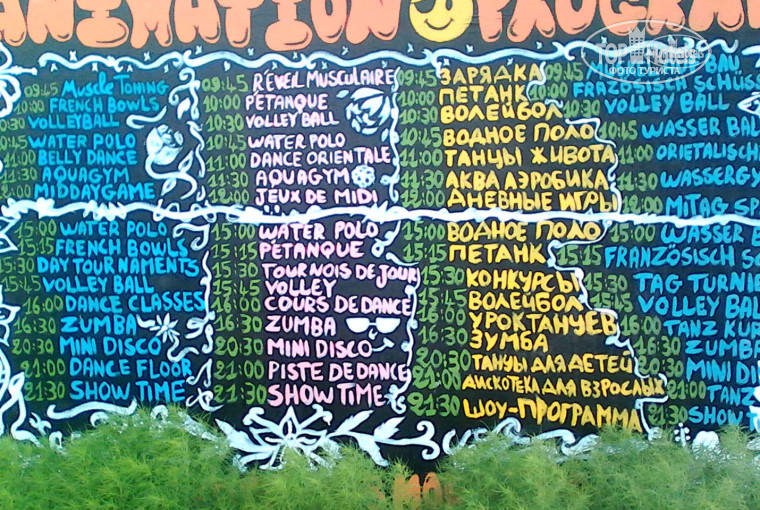 ANIMATION PROGRAM
TopHotels
ФОТО ТУРИСТА
09:45 Muscle Toning
10:00 FRENCH BOWLS
10:30 VOLLEYBALL
10:45 WATER POLO
11:00 BELLY DANCE
11:30 AQUAGYM
12:00 MIDDAYGAME
15:00 WATER POLO
15:15 FRENCH BOWLS
15:30 DAY TOURNAMENTS
15:45 VOLLEY BALL
16:00 DANCE CLASSES
16:30 ZUMBA
20:30 MINI DISCO
21:00 DANCE FLOOR
21:30 SHOW TIME
09:45 RÉVEIL MUSCULAIRE
10:00 PÉTANQUE
10:30 VOLLEY BALL
10:45 WATER POLO
11:00 DANCE ORIENTALE
11:30 AQUAGYM
12:00 JEUX DE MIDI
15:00 WATER POLO
15:15 PÉTANQUE
15:30 TOURNOIS DE JOUR
15:45 VOLLEY
16:00 COURS DE DANCE
16:30 ZUMBA
20:30 MINI DISCO
21:00 PISTE DE DANCE
21:30 SHOW TIME
09:45 ЗАРЯДКА
10:00 ПЕТАНК
10:30 ВОЛЕЙБОЛ
10:45 ВОДНОЕ ПОЛО
11:00 ТАНЦЫ ЖИВОТА
11:30 АКВА АЭРОБИКА
12:00 ДНЕВНЫЕ ИГРЫ
15:00 ВОДНОЕ ПОЛО
15:15 ПЕТАНК
15:30 КОНКУРСЫ
15:45 ВОЛЕЙБОЛ
16:00 УРОКТАНЦЕВ
16:30 ЗУМБА
20:30 ТАНЦЫ ДЛЯ ДЕТЕЙ
21:00 ДИСКОТЕКА ДЛЯ ВЗРОСЛЫХ
21:30 ШОУ-ПРОГРАММА
09:45 BAU
10:00 FRAZÖSISCH SCHÜSS
10:30 VOLLEY BALL
10:45 WASSER BAL
11:00 ORIETALISCH
11:30 WASSERGY
12:00 MITAG SP
15:00 WASSER B
15:15 FRANZÖSISCH SC
15:30 TAG TURNIE
15:45 VOLLEY BAL
16:00 TANZ KUR
16:30 ZUMBA
20:30 MINI DIS
21:00 TANZ
21:30 SHOW T